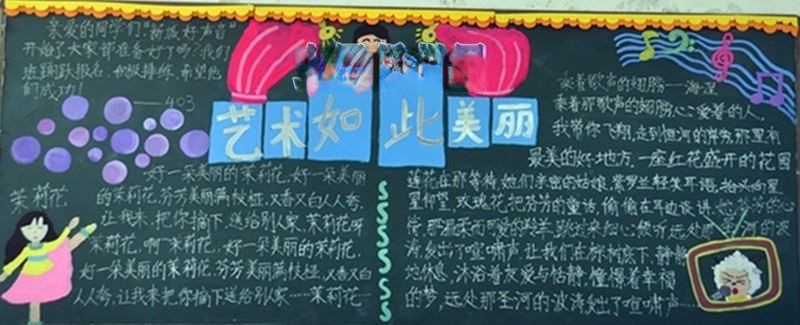 亲爱的同学们"新成好声音"
开始了大家都准备好了吗?我们
班踊跃报名、积极排练,希望他
们成功!
——403
艺术如此美丽
茉莉花
好一朵美丽的茉莉花,好一朵美丽
的茉莉花,芬芳美丽满枝桠,又香又白人人夸,
让我来,把你摘下,送给别人家,茉莉花呀
茉莉花,啊,茉莉花,好一朵美丽的茉莉花,
好一朵美丽的茉莉花,芬芳美丽满枝桠,又香又白
人人夸,让我来把你摘下送给别人家……茉莉花
乘着歌声的翅膀——海涅
乘着那歌声的翅膀,心心爱着的人,
我带你飞翔,走到恒河的岸旁,那里有
最美的好地方,一座红花盛开的花园
莲花在那等待,她们亲密的姑娘,紫罗兰轻笑耳语,抬头向星
星仰望,玫瑰花,把芬芳的童话,偷偷在耳边谈讲,
傍听远处那
发出了喧啸声,让我们在椰树底下,静静
地休息,沐浴着友爱与恬静,憧憬着幸福
的梦,远处那圣河的波涛发出了喧啸声……